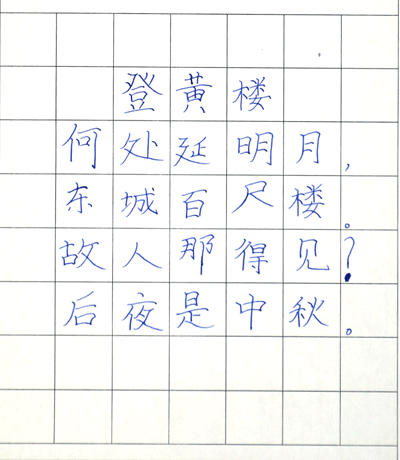 登黄楼
何处延明月，
东城百尺楼。
故人那得见？
后夜是中秋。